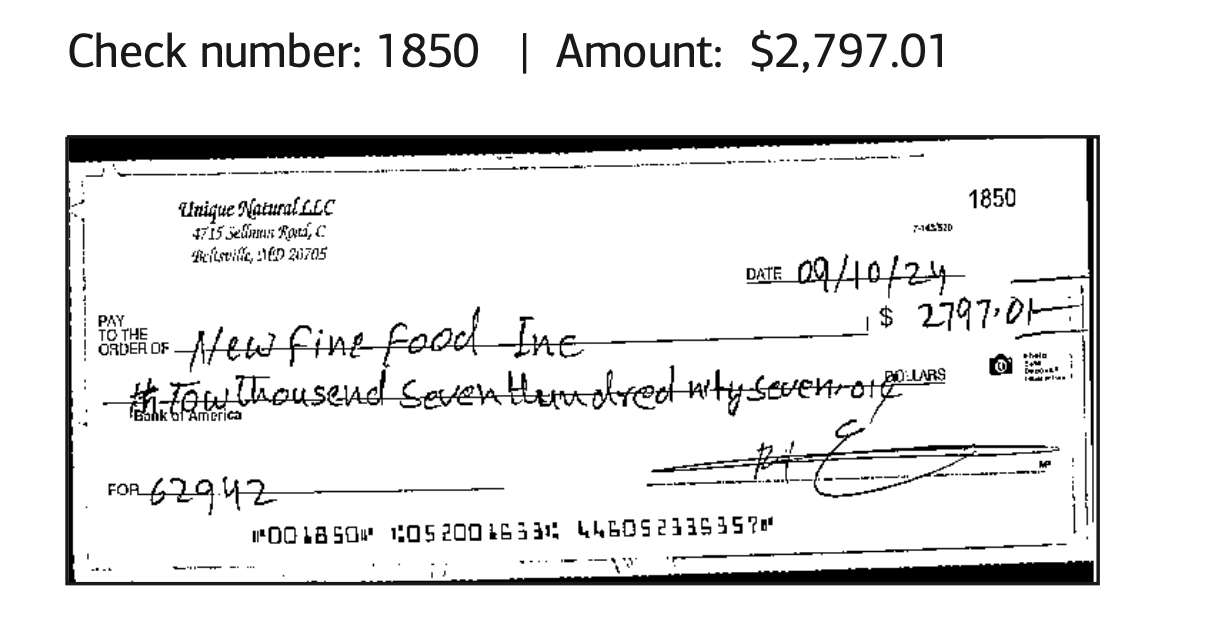 Check number: 1850 | Amount: $2,797.01
Unique Natural LLC
1850
4715 Sellman Road, C
7-163/520
Beltsville, MD 20705
DATE 09/10/24
PAY
TO THE
ORDER OF New fine food Inc $ 2797.01
# Tow Thousend Seven Hundred nity seven DOLLARS
Photo
Safe
Deposit
Bank of America
FOR 62942
MP
⑈001850⑈ ⑆052001633⑆ 446052336357⑈